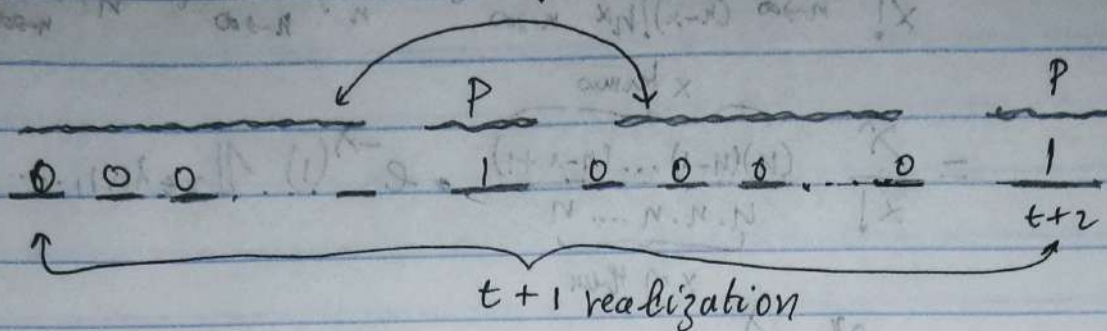 P P
0 0 0 . . . . _ 1 0 0 0 . . . . 0 1
t+2
t + 1 realization